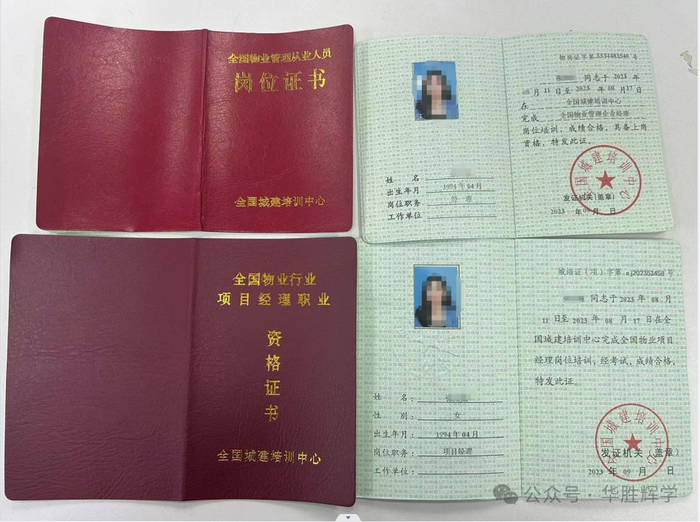 全国物业管理从业人员
岗位证书
全国城建培训中心
物岗证字第3334483540号
同志于2023年
08月11日至2023年08月17日
在 全国城建培训中心
完成 全国物业管理企业经理
岗位培训，成绩合格，具备上岗
资格，特发此证。
姓名
出生年月 1994年04月
岗位职务 经理
工作单位
全国城建培训中心
发证机关(盖章)
2023年09月 日
全国物业行业
项目经理职业
资格证书
全国城建培训中心
城培证（项）字第cj202353458号
同志于2023年08月
11日至2023年08月17日在全
国城建培训中心完成全国物业项目
经理岗位培训，经考试，成绩合格，
特发此证。
姓名：
性别： 女
出生年月： 1994年04月
岗位职务： 项目经理
工作单位：
全国城建培训中心
发证机关（盖章）
2023年09月 日
公众号·华胜辉学